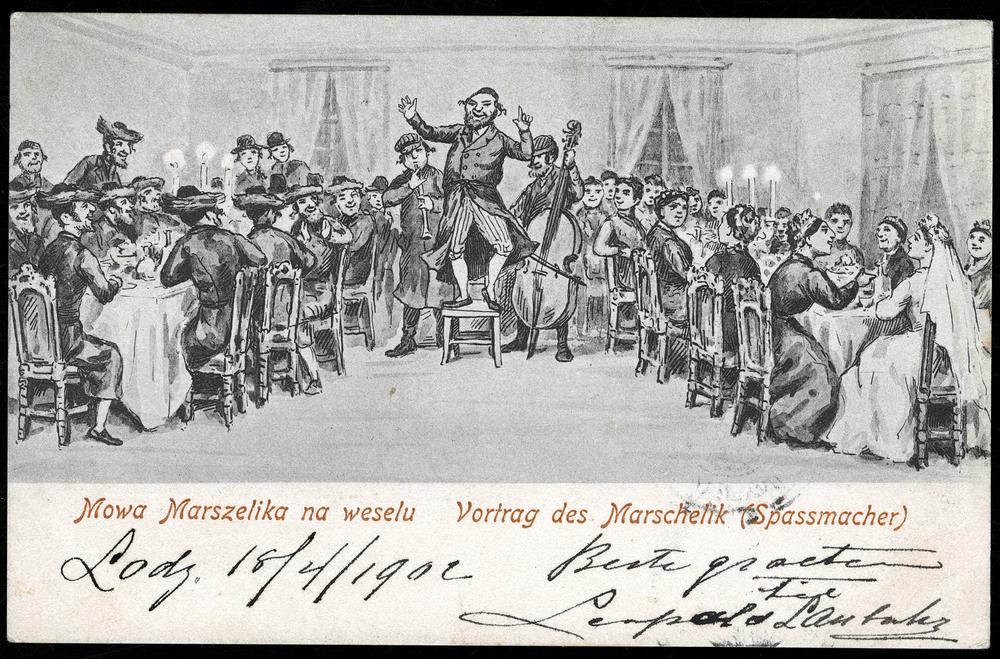 Mowa Marszelika na weselu Vortrag des Marschelik (Spassmacher)
Lodz, 18/4/1902
Beste groeten
Leopold